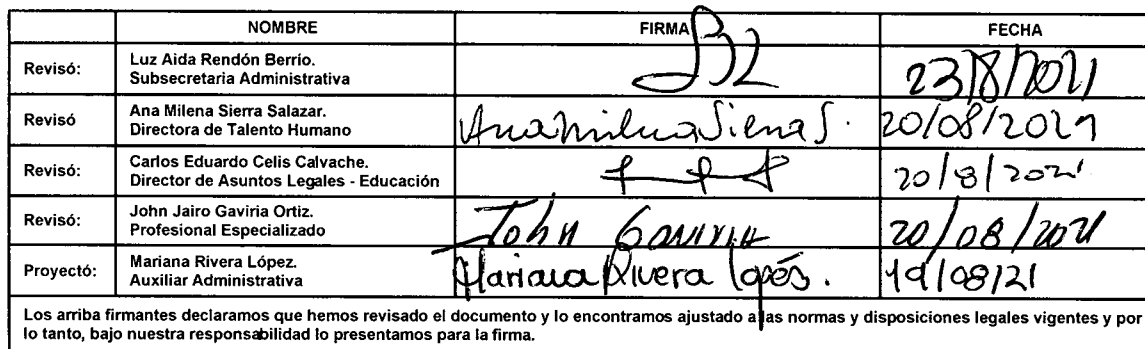 NOMBRE FIRMA FECHA
Revisó: Luz Aida Rendón Berrío.
Subsecretaria Administrativa
23/8/2021
Revisó Ana Milena Sierra Salazar.
Directora de Talento Humano
Ana Milena Sierra S. 20/08/2021
Revisó: Carlos Eduardo Celis Calvache.
Director de Asuntos Legales - Educación
20/8/2021
Revisó: John Jairo Gaviria Ortiz.
Profesional Especializado
John Gaviria 20/08/2021
Proyectó: Mariana Rivera López.
Auxiliar Administrativa
Mariana Rivera López. 19/08/21
Los arriba firmantes declaramos que hemos revisado el documento y lo encontramos ajustado a las normas y disposiciones legales vigentes y por
lo tanto, bajo nuestra responsabilidad lo presentamos para la firma.